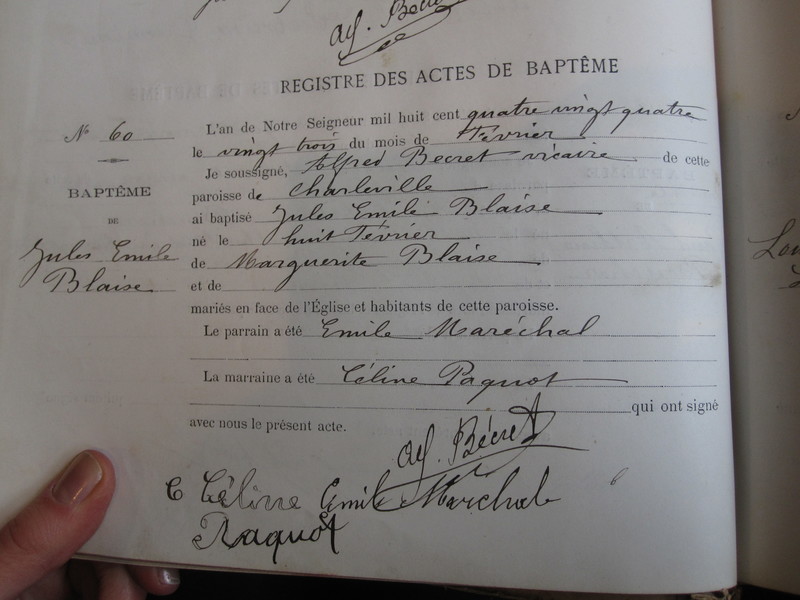 Alf. Bécret
REGISTRE DES ACTES DE BAPTÊME
Nº 60
BAPTÊME
DE
Jules Emile
Blaise
L'an de Notre Seigneur mil huit cent quatre vingt quatre
le vingt trois du mois de Février
Je soussigné, Alfred Becret vicaire de cette
paroisse de Charleville
ai baptisé Jules Emile Blaise
né le huit Février
de Marguerite Blaise
et de
mariés en face de l'Église et habitants de cette paroisse.
Le parrain a été Emile Maréchal
La marraine a été Céline Paquot
qui ont signé
avec nous le présent acte.
Alf. Bécret
C Céline Emile Maréchal
Paquot